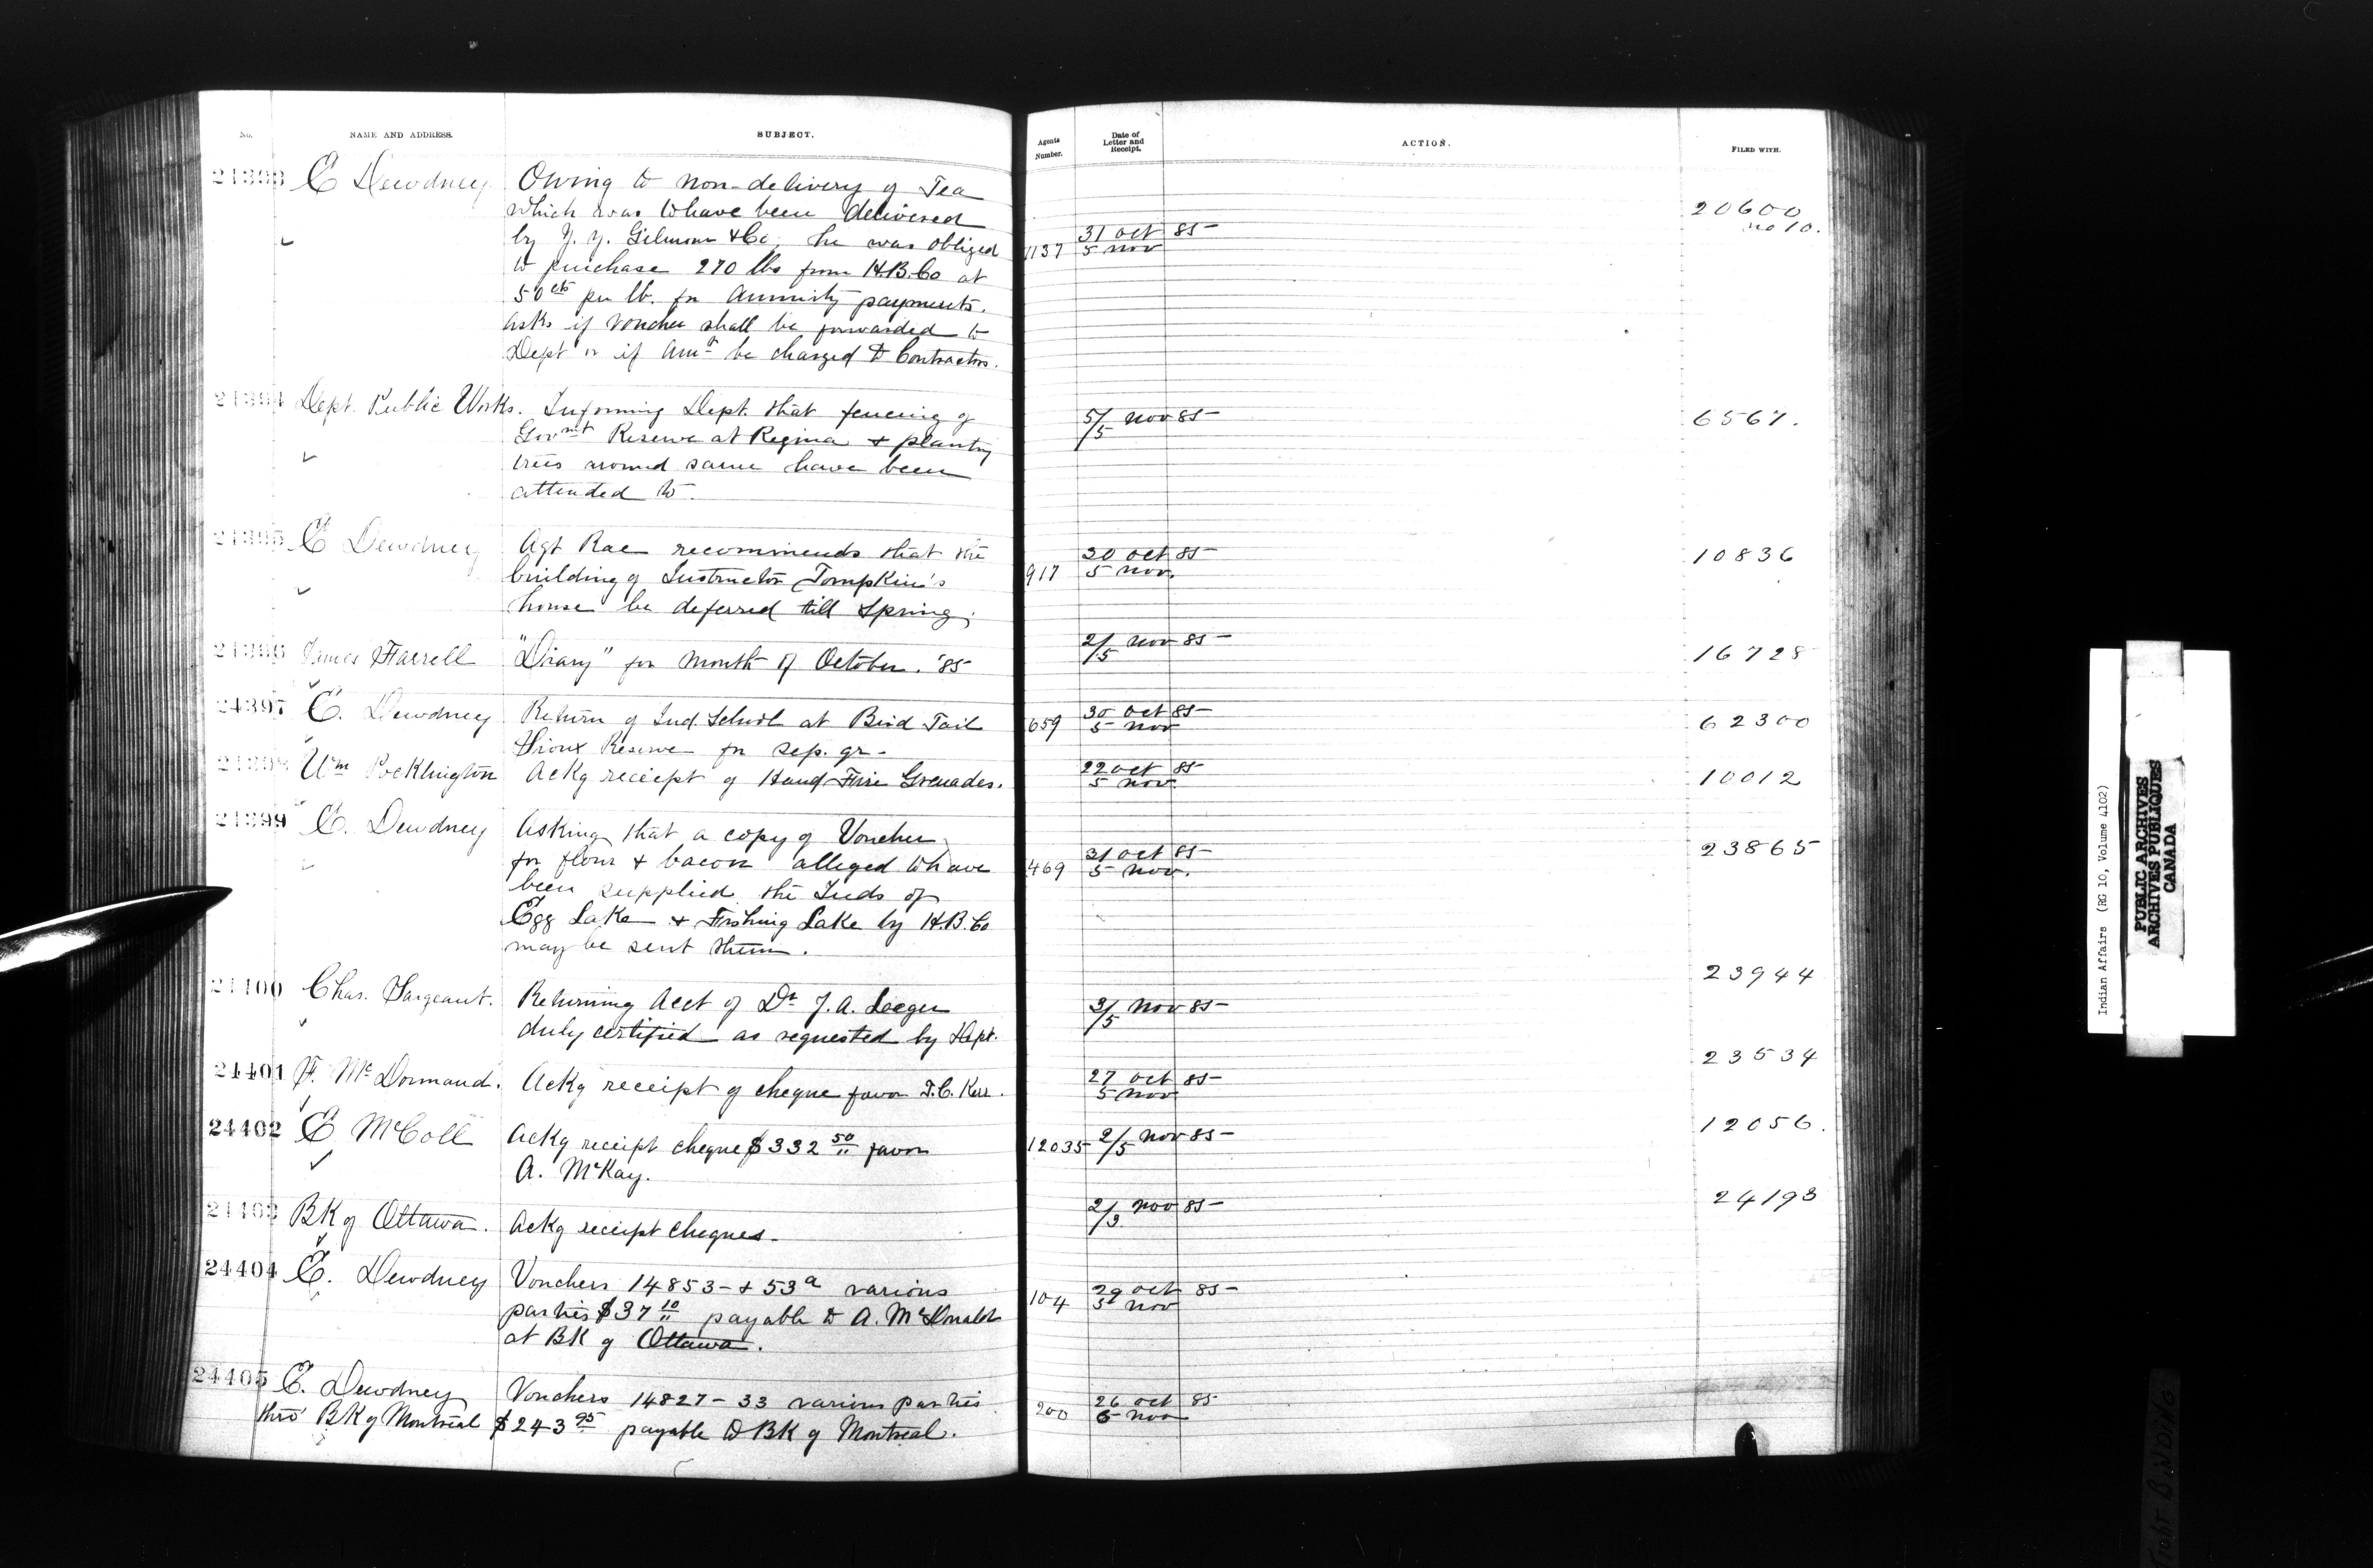 No. NAME AND ADDRESS. SUBJECT. Agents Number. Date of Letter and Receipt. ACTION. FILED WITH.
24393 E Dewdney Owing to non-delivery of Tea
which was to have been delivered 20600
by J. Y. Gilmour & Co. he was obliged 1137 31 Oct 85 no 10.
to purchase 270 lbs from H.B.Co at 5 Nov
50 cts per lb. for Annuity payments.
Asks if voucher shall be forwarded to
Dept or if Amt be charged to Contractors.
24394 Dept. Public Works. Informing Dept. that fencing of 5/5 Nov 85 6567.
Govmt Reserve at Regina & planting
trees around same have been
attended to.
24395 E Dewdney Agt Rae recommends that the 30 Oct 85 10836
building of Instructor Tompkin's 917 5 Nov.
house be deferred till Spring.
24396 James Farrell "Diary" for month of October. '85 2/5 Nov 85 16728
24397 E. Dewdney Return of Ind School at Bird Tail 659 30 Oct 85 62300
Sioux Reserve for Sep. qr. 5 Nov
24398 Wm Pocklington Ackg receipt of Hand Fire Grenades. 22 Oct 85 10012
5 Nov.
24399 E. Dewdney Asking that a copy of Voucher
for flour & bacon alleged to have 469 31 Oct 85 23865
been supplied the Inds of 5 Nov.
Egg Lake & Fishing Lake by H.B.Co
may be sent them.
24400 Chas. Sargeant. Returning Acct of Dr J. A. 3/5 Nov 85 23944
duly certified as requested by Dept.
24401 F. McDormand. Ackg receipt of cheque favor T.C. Kerr. 27 Oct 85 23534
5 Nov
24402 E McColl Ackg receipt cheque $332 50 favor 12035 2/5 Nov 85 12056.
A. McKay.
24403 BK of Ottawa. Ackg receipt cheques. 2/3 Nov 85 24193
24404 E. Dewdney Vouchers 14853 & 53a various 104 29 Oct 85
parties $37 10 payable to A. McDonald 5 Nov
at BK of Ottawa.
24405 E. Dewdney Vouchers 14827 - 33 various parties 200 26 Oct 85
thro' BK of Montreal $243 95 payable to BK of Montreal. 5 Nov
Indian Affairs (RG 10, Volume 4102)
PUBLIC ARCHIVES
ARCHIVES PUBLIQUES
CANADA